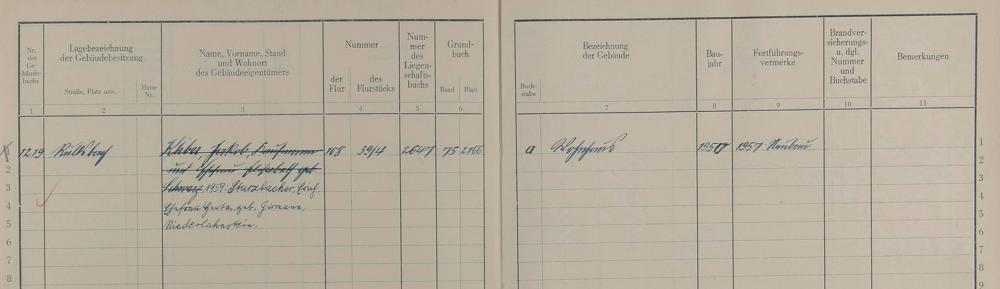 Nr. des Ge-bäude-buchs
Lagebezeichnung
der Gebäudebesitzung
Straße, Platz usw.
Haus-Nr.
Name, Vorname, Stand
und Wohnort
des Gebäudeeigentümers
Nummer
der Flur
des Flurstücks
Num-mer des Liegen-schafts-buchs
Grund-buch
Band
Blatt
1
2
3
4
5
6
1219
108
394
2647
75 2166
Kleber, Jakob, Kaufmann
und Ehefrau Elisabeth geb.
1959: Sturzbacher, Erich,
Ehefrau geb.
Niederlahnstein.
2
3
4
5
6
7
8
Buch-stabe
Bezeichnung
der Gebäude
Bau-jahr
Fortführungs-
vermerke
Brandver-
sicherungs-
u. dgl.
Nummer
und
Buchstabe
Bemerkungen
7
8
9
10
11
a Wohnhaus 1950 1951 Neubau
1
2
3
4
5
6
7
8
9